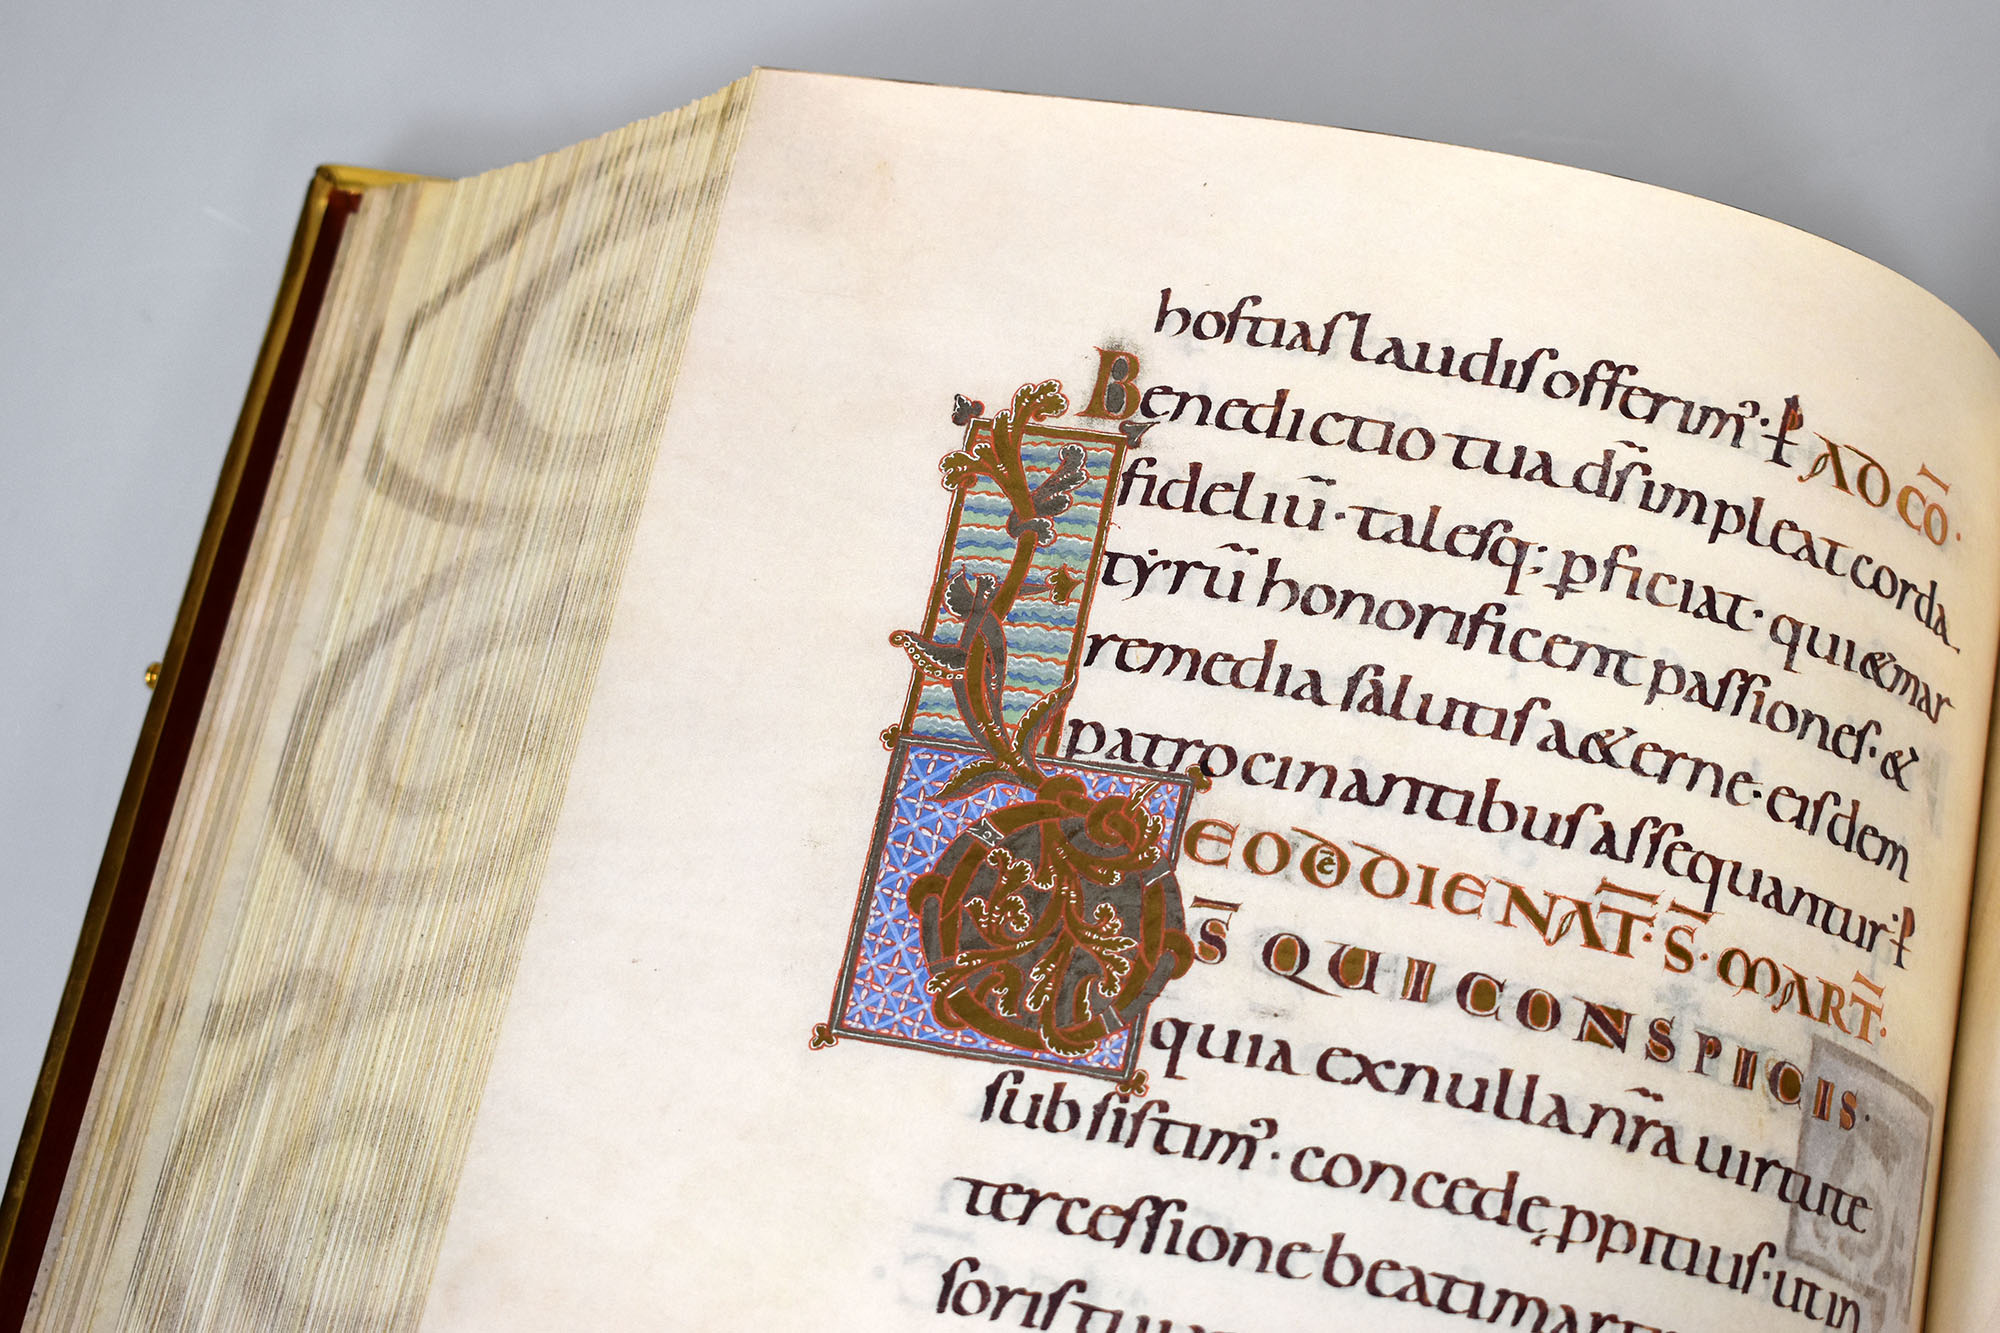 hostias laudis offerim᾿· P AD CŌ·
Benedictio tua ds̄ impleat corda
fideliū· talesq; pficiat· qui & mar
tẏrū honorificent passiones· &
remedia salutis a&erne· eisdem
patrocinantibus assequantur· P
EODĒ DIE NAT̄· S̄· MART̄·
D
S̄ QUI CONSPICIS·
quia ex nulla nr̄a uirtute
subsistim᾿· concedę ppitius· ut in
tercessione beati mart
soris tui